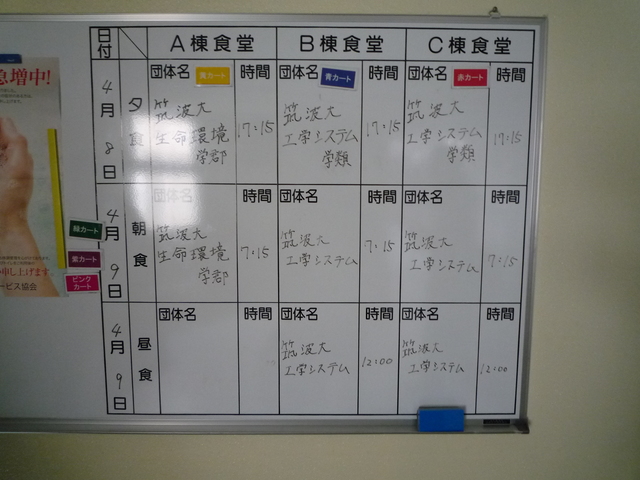 日付 A棟食堂 B棟食堂 C棟食堂
4月8日 夕食
団体名 黄カート 時間
筑波大
生命環境
学部
17:15
団体名 青カート 時間
筑波大
工学システム
学類
17:15
団体名 赤カート 時間
筑波大
工学システム
学類
17:15
4月9日 朝食
団体名 時間
筑波大
生命環境
学部
7:15
団体名 時間
筑波大
工学システム
7:15
団体名 時間
筑波大
工学システム
7:15
4月9日 昼食
団体名 時間
団体名 時間
筑波大
工学システム
12:00
団体名 時間
筑波大
工学システム
12:00
急増中!
緑カート
紫カート
ピンク
カート
申し上げます
ービス協会